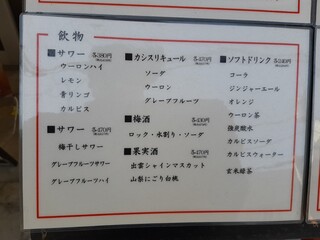 飲物
■サワー 各380円
ウーロンハイ
レモン
青リンゴ
カルピス
■サワー 各470円
梅干しサワー
グレープフルーツサワー
グレープフルーツハイ
■カシスリキュール 各470円
ソーダ
ウーロン
グレープフルーツ
■梅酒 各430円
ロック・水割り・ソーダ
■果実酒 各470円
出雲シャインマスカット
山梨にごり白桃
■ソフトドリンク
コーラ
ジンジャーエール
オレンジ
ウーロン茶
強炭酸水
カルピスソーダ
カルピスウォーター
玄米緑茶